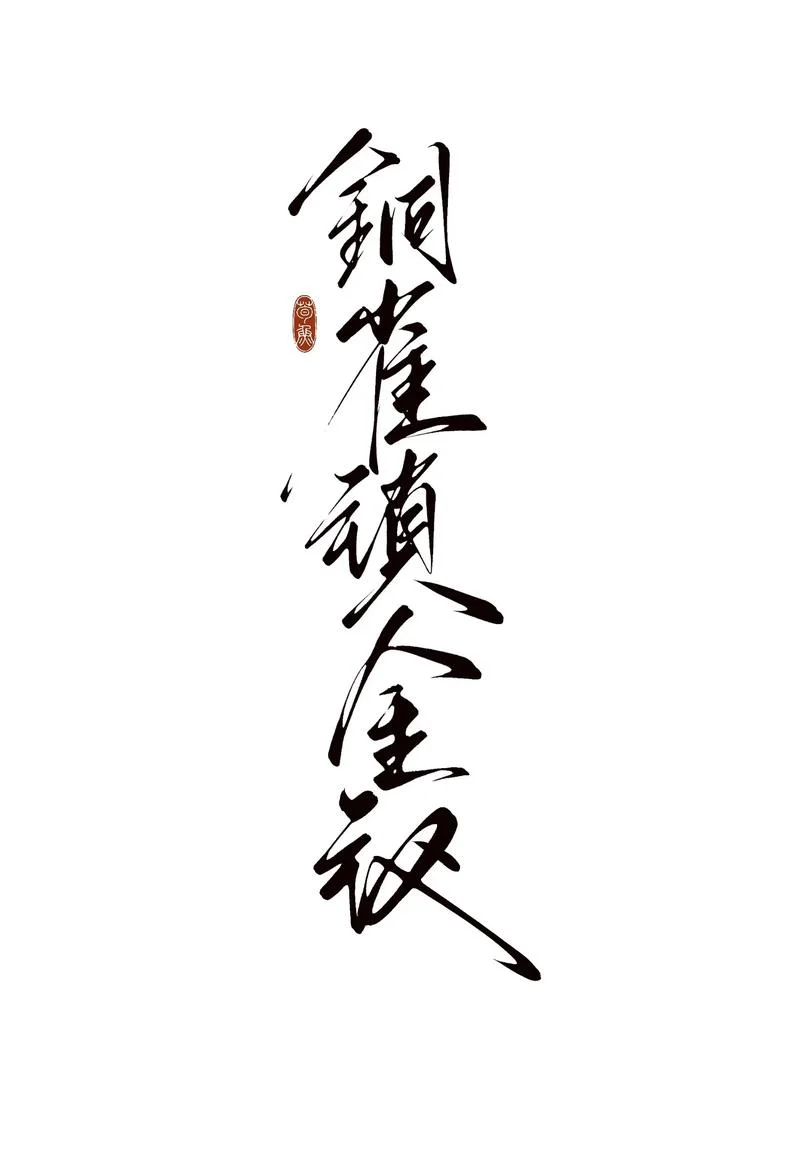 銅雀鎖金釵